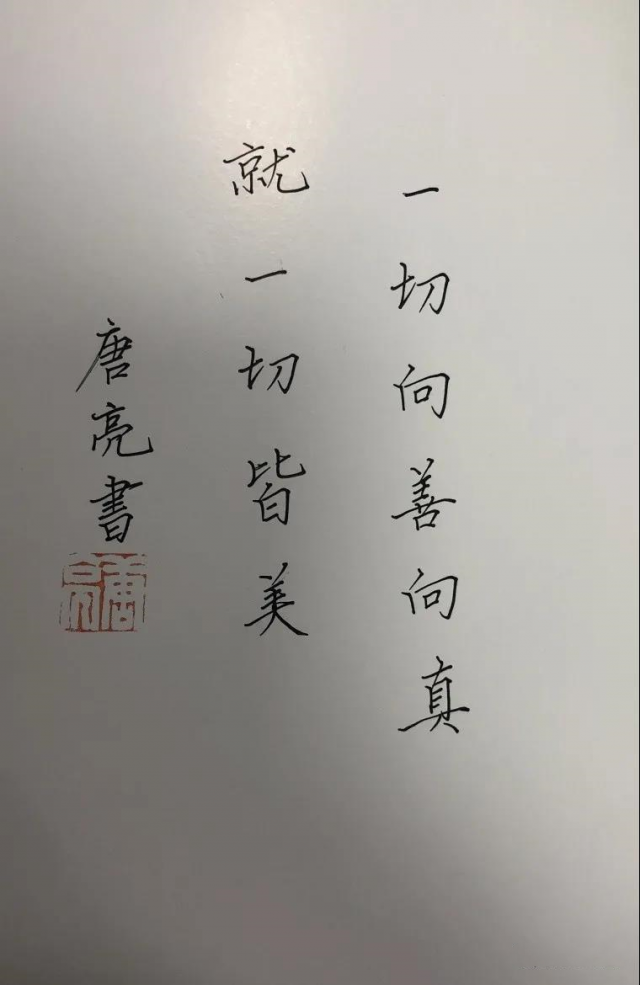 一切向善向真
就一切皆美
唐亮書
唐亮